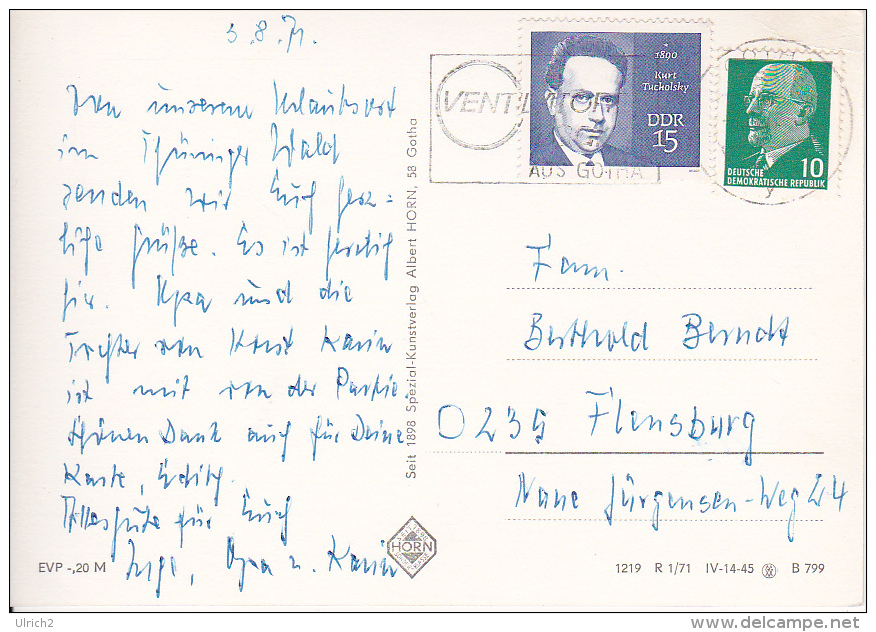 3.8.71.
Von unserem Urlaubsort
im Thüringer Wald
senden wir Euch herz=
liche Grüße. Es ist herrlich
hier. und die
Tochter von Horst Karin
ist mit von der Partie.
Schönen Dank auch für Deine
Karte, Edith.
Alles gute für Euch
Inge, u. Karin
EVP -,20 M
Seit 1898 Spezial-Kunstverlag Albert HORN, 58 Gotha
HORN
VENTILATOREN
AUS GOTHA
* 1890
Kurt
Tucholsky
DDR
15
10
DEUTSCHE
DEMOKRATISCHE REPUBLIK
Fam.
Berthold Berndt
D 239 Flensburg
Nane Jürgensen-Weg 24
1219 R 1/71 IV-14-45 B 799
Ulrich2
delcampe.net